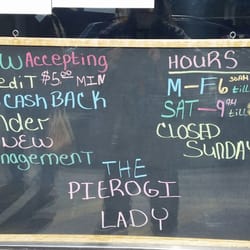 W Accepting
ediT $5.00 MIN
CASH BACK
nder
NEW
anagemenT
HOURS
M-F 6 till
SAT-9 till
CLOSED
SUNDAY
THE
PIEROGI
LADY